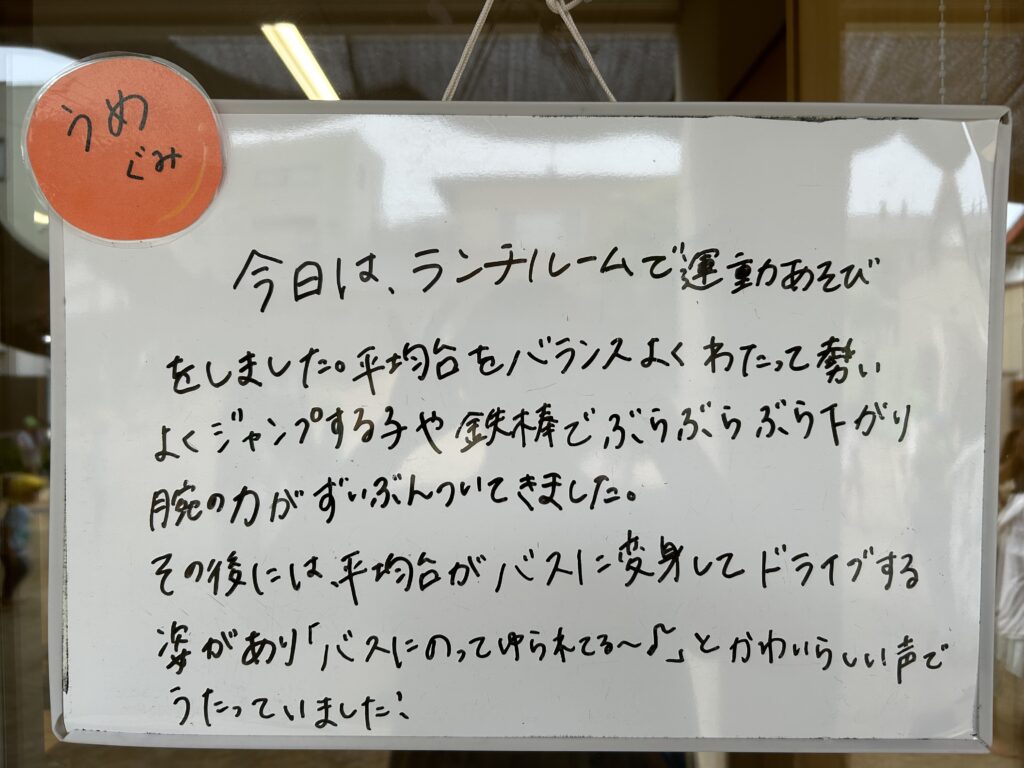 うめ
ぐみ
今日は、ランチルームで運動あそび
をしました。平均台をバランスよくわたって勢い
よくジャンプする子や鉄棒でぶらぶらぶら下がり
腕の力がずいぶんついてきました。
その後には、平均台がバスに変身してドライブする
姿があり「バスにのってゆられてる～♪」とかわいらしい声で
うたっていました!